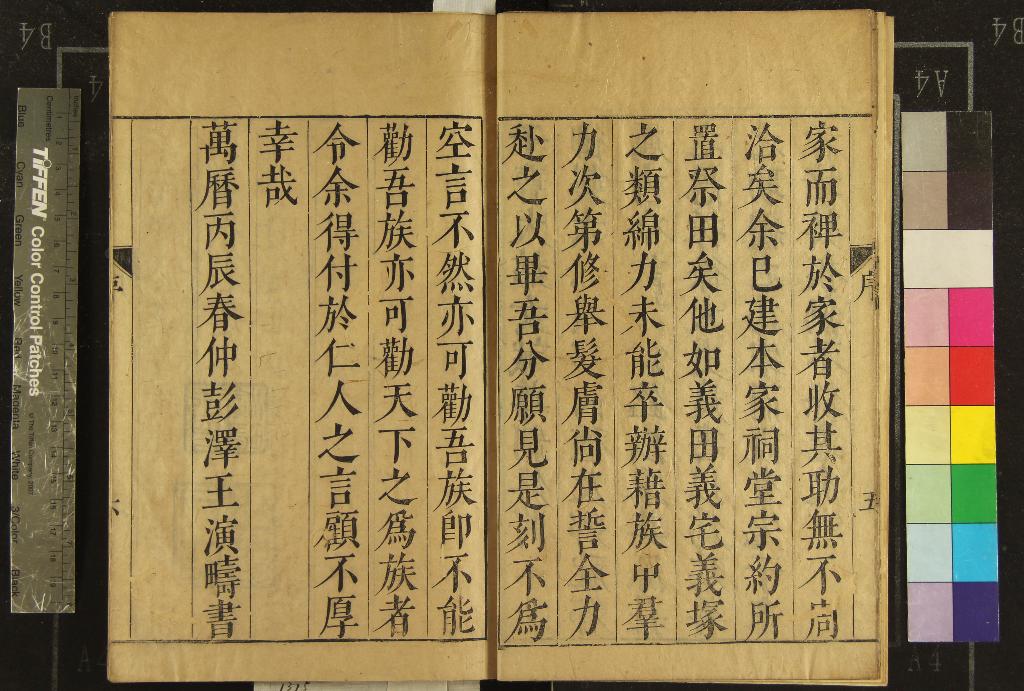 家而裡於家者收其助無不周
洽矣余已建本家祠堂宗約所
置祭田矣他如義田義宅義塚
之類綿力未能卒辦藉族中羣
力次第修舉髮膚尚在誓全力
赴之以畢吾分願見是刻不為
序
五
空言不然亦可勸吾族即不能
勸吾族亦可勸天下之為族者
令余得付於仁人之言顧不厚
幸哉
萬曆丙辰春仲彭澤王演疇書
TIFFEN Color Control Patches
© The Tiffen Company, 2007
Centimetres
Inches
Blue
Cyan
Green
Yellow
Red
Magenta
White
3/Color
Black
B4
A4
A4
B4
A4
A4